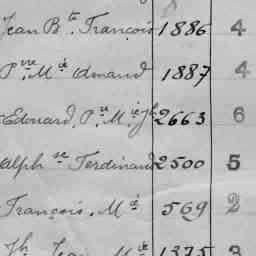 Jean Bte. François 1886 4
Pre. Mie. Amand 1887 4
Edouard, Pre. M. ie. Jh. 2663 6
Alphse. Ferdinand 2500 5
François. Mie. 569 2
Jh. Jean Mie. 1375 3